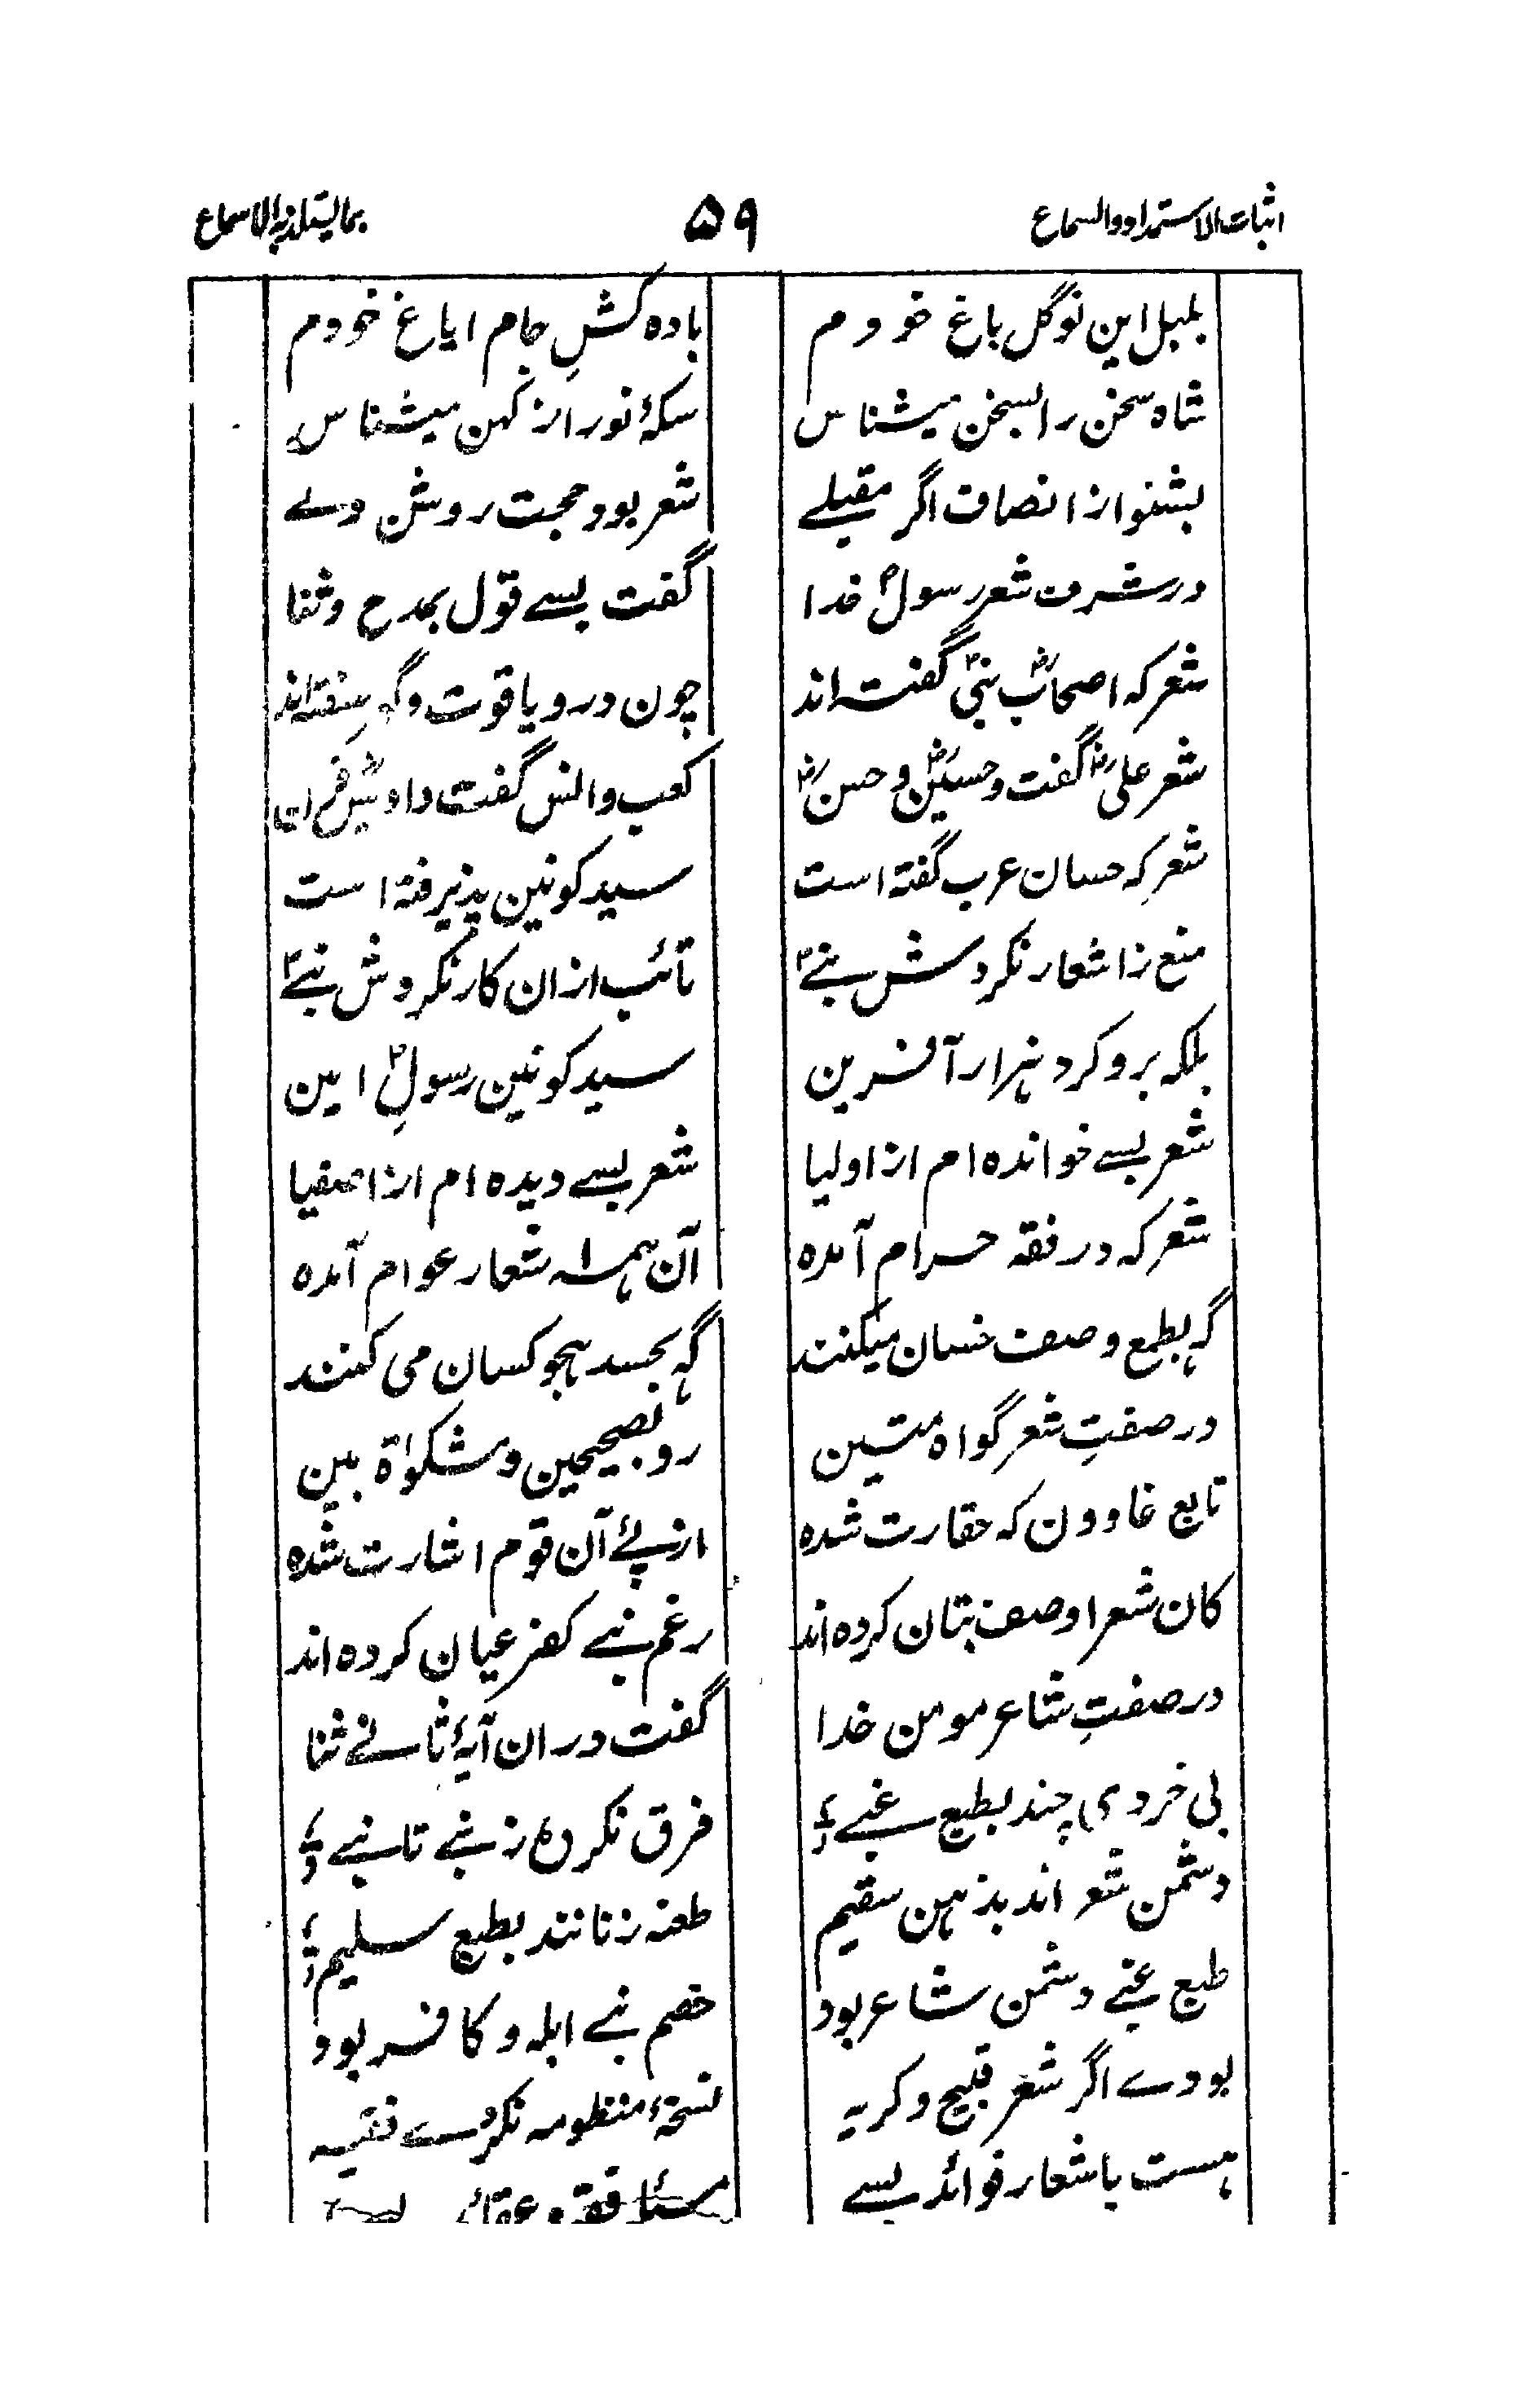 اثبات الاستمداد والسماع ۵۹ بما يستلذ به الاسماع
بلبل این نوگل باغ خودم بادہ کشِ جام ایاغ خودم
شاہ سخن را بسخن میشناس سکۂ نو را از کہن میشناس
بشنو از انصاف اگر مقبلے شعر بود حجت روشن دلے
در شرف شعر رسولؐ خدا گفت بسے قول بمدح و ثنا
شعر کہ اصحابؓ نبیؐ گفتہ اند چون در و یاقوت و گہر سفتہ اند
شعر علیؓ گفت و حسینؓ و حسنؓ کعب و انس گفت
شعر کہ حسان عرب گفتہ است سید کونین پذیرفتہ است
منع ز اشعار نکردش نبےؐ تائب ازان کار نکردش نبےؐ
بلکہ برو کرد ہزار آفرین سید کونین رسولِؐ امین
شعر بسے خواندہ ام از اولیا شعر بسے دیدہ ام از اصفیا
شعر کہ در فقہ حرام آمدہ آن ہمہ اشعار عوام آمدہ
گہ بطمع وصف خسان میکنند گہ بحسد ہجو کسان می کنند
در صفتِ شعر گواہ متین رو بصحیحین و مشکوٰۃ بین
تابع غاوون کہ حقارت شدہ از پئے آن قوم اشارت شدہ
کان شعرا وصف بتان کردہ اند رغم نبے کفر عیان کردہ اند
در صفتِ شاعر مومن خدا گفت دران آیۂ ثانے ثنا
بی خردی چند بطبع غبے فرق نکردہ ز نبے تا نبے
دشمن شعر اند بذہن سقیم طعنہ زنانند بطبع سلیم
طبع غبے دشمن شاعر بود خصم نبے ابلہ و کافر بود
بودے اگر شعر قبیح و کریہ نسخۂ منظومہ نکردے فقیہ
ہست باشعار فوائد بسے